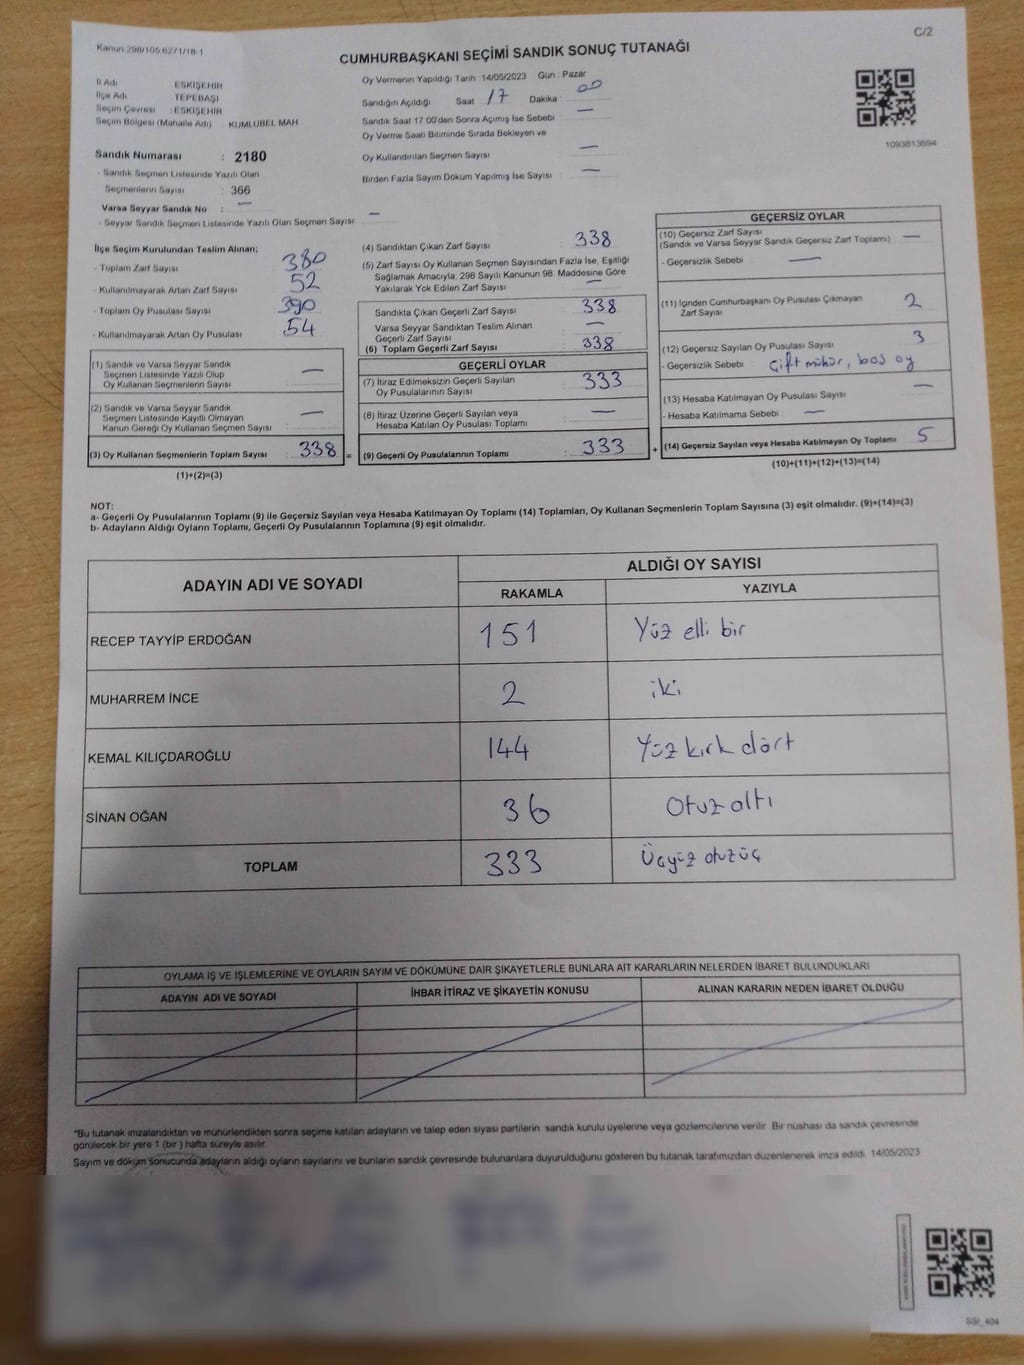 Kanun 298/105,62/1/18.1
C/2
CUMHURBAŞKANI SEÇİMİ SANDIK SONUÇ TUTANAĞI
İl Adı : ESKİŞEHİR
İlçe Adı : TEPEBAŞI
Seçim Çevresi : ESKİŞEHİR
Seçim Bölgesi (Mahalle Adı) : KUMLUBEL MAH
Sandık Numarası : 2180
- Sandık Seçmen Listesinde Yazılı Olan
Seçmenlerin Sayısı : 366
Varsa Seyyar Sandık No : —
- Seyyar Sandık Seçmen Listesinde Yazılı Olan Seçmen Sayısı: —
Oy Vermenin Yapıldığı Tarih : 14/05/2023 Gün : Pazar
Sandığın Açıldığı Saat : 17 Dakika : 00
Sandık Saat 17:00'den Sonra Açımış İse Sebebi : —
Oy Verme Saati Bitiminde Sırada Bekleyen ve
Oy Kullandırılan Seçmen Sayısı : —
Birden Fazla Sayım Döküm Yapılmış İse Sayısı : —
1093813694
İlçe Seçim Kurulundan Teslim Alınan;
- Toplam Zarf Sayısı : 380
- Kullanılmayarak Artan Zarf Sayısı : 52
- Toplam Oy Pusulası Sayısı : 390
- Kullanılmayarak Artan Oy Pusulası : 54
(1) Sandık ve Varsa Seyyar Sandık
Seçmen Listesinde Yazılı Olup
Oy Kullanan Seçmenlerin Sayısı : —
(2) Sandık ve Varsa Seyyar Sandık
Seçmen Listesinde Kayıtlı Olmayan
Kanun Gereği Oy Kullanan Seçmen Sayısı : —
(3) Oy Kullanan Seçmenlerin Toplam Sayısı : 338 =
(1)+(2)=(3)
(4) Sandıktan Çıkan Zarf Sayısı : 338
(5) Zarf Sayısı Oy Kullanan Seçmen Sayısından Fazla İse, Eşitliği
Sağlamak Amacıyla; 298 Sayılı Kanunun 98. Maddesine Göre
Yakılarak Yok Edilen Zarf Sayısı : —
Sandıkta Çıkan Geçerli Zarf Sayısı : 338
Varsa Seyyar Sandıktan Teslim Alınan
Geçerli Zarf Sayısı : —
(6) Toplam Geçerli Zarf Sayısı : 338
GEÇERLİ OYLAR
(7) İtiraz Edilmeksizin Geçerli Sayılan
Oy Pusulalarının Sayısı : 333
(8) İtiraz Üzerine Geçerli Sayılan veya
Hesaba Katılan Oy Pusulası Toplamı : —
(9) Geçerli Oy Pusulalarının Toplamı : 333 +
GEÇERSİZ OYLAR
(10) Geçersiz Zarf Sayısı
(Sandık ve Varsa Seyyar Sandık Geçersiz Zarf Toplamı) —
- Geçersizlik Sebebi : —
(11) İçinden Cumhurbaşkanı Oy Pusulası Çıkmayan
Zarf Sayısı 2
(12) Geçersiz Sayılan Oy Pusulası Sayısı 3
- Geçersizlik Sebebi : Çift mühür, boş oy
(13) Hesaba Katılmayan Oy Pusulası Sayısı —
- Hesaba Katılmama Sebebi : —
(14) Geçersiz Sayılan veya Hesaba Katılmayan Oy Toplamı 5
(10)+(11)+(12)+(13)=(14)
NOT:
a- Geçerli Oy Pusulalarının Toplamı (9) ile Geçersiz Sayılan veya Hesaba Katılmayan Oy Toplamı (14) Toplamları, Oy Kullanan Seçmenlerin Toplam Sayısına (3) eşit olmalıdır. (9)+(14)=(3)
b- Adayların Aldığı Oyların Toplamı, Geçerli Oy Pusulalarının Toplamına (9) eşit olmalıdır.
ADAYIN ADI VE SOYADI
ALDIĞI OY SAYISI
RAKAMLA YAZIYLA
RECEP TAYYİP ERDOĞAN 151 Yüz elli bir
MUHARREM İNCE 2 iki
KEMAL KILIÇDAROĞLU 144 Yüz kırk dört
SİNAN OĞAN 36 Otuz altı
TOPLAM 333 Üçyüz otuzüç
OYLAMA İŞ VE İŞLEMLERİNE VE OYLARIN SAYIM VE DÖKÜMÜNE DAİR ŞİKAYETLERLE BUNLARA AİT KARARLARIN NELERDEN İBARET BULUNDUKLARI
ADAYIN ADI VE SOYADI İHBAR İTİRAZ VE ŞİKAYETİN KONUSU ALINAN KARARIN NEDEN İBARET OLDUĞU
*Bu tutanak imzalandıktan ve mühürlendikten sonra seçime katılan adayların ve talep eden siyasi partilerin sandık kurulu üyelerine veya gözlemcilerine verilir. Bir nüshası da sandık çevresinde
görülecek bir yere 1 (bir ) hafta süreyle asılır.
Sayım ve döküm sonucunda adayların aldığı oyların sayılarını ve bunların sandık çevresinde bulunanlara duyurulduğunu gösteren bu tutanak tarafımızdan düzenlenerek imza edildi. 14/05/2023
SSI_404